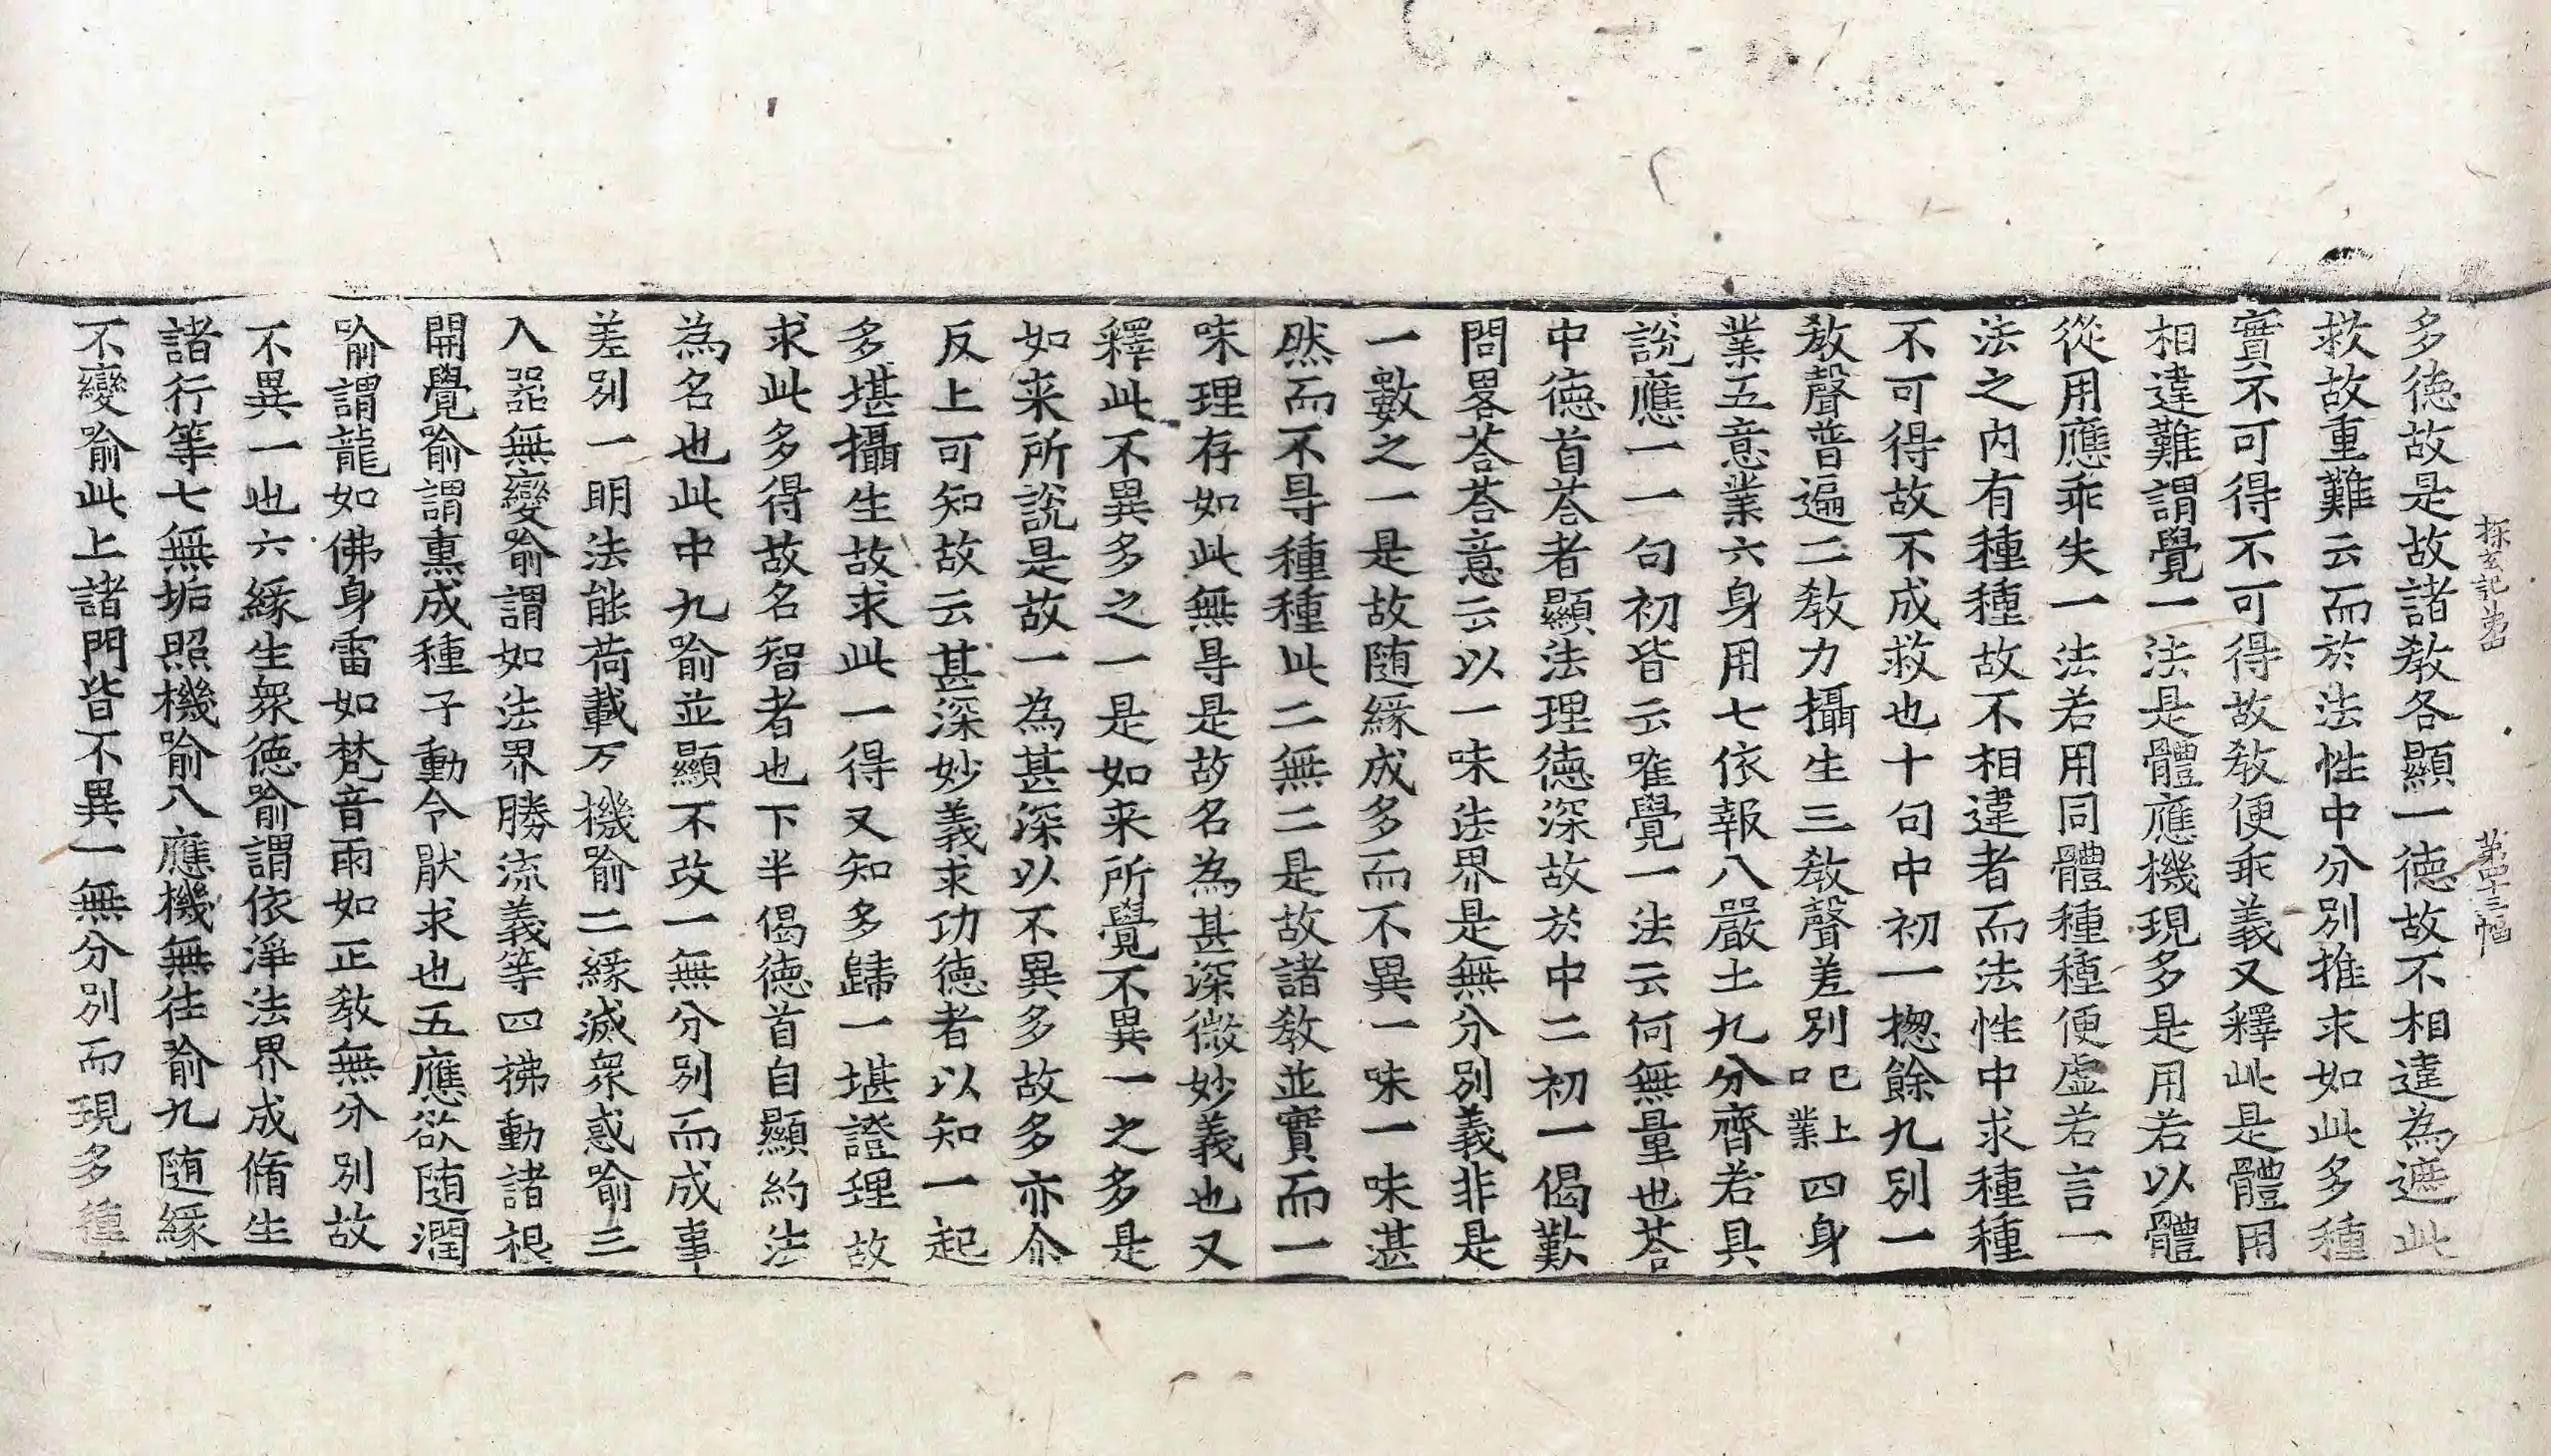 探玄記苐四　苐四十三幅
多徳故是故諸教各顯一徳故不相違為遮此
救故重難云而於法性中分別推求如此多種
實不可得不可得故教便乖義又釋此是體用
相違難謂覺一法是體應機現多是用若以體
從用應乖失一法若用同體種種便虛若言一
法之内有種種故不相違者而法性中求種種
不可得故不成救也十句中初一揔餘九別一
教聲普遍二教力攝生三教聲差別已上口業四身
業五意業六身用七依報八嚴土九分齊若具
說應一一句初皆云唯覺一法云何無量也荅
中徳首荅者顯法理徳深故於中二初一偈歎
問畧荅荅意云以一味法界是無分別義非是
一數之一是故随緣成多而不異一味一味湛
然而不㝵種種此二無二是故諸教並實而一
味理存如此無㝵是故名為甚深微妙義也又
釋此不異多之一是如来所覺不異一之多是
如来所說是故一為甚深以不異多故多亦尒
反上可知故云甚深妙義求功徳者以知一起
多堪攝生故求此一得又知多歸一堪證理故
求此多得故名智者也下半偈徳首自顯約法
為名也此中九喻並顯不改一無分別而成事
差別一明法能荷載万機喻二緣滅衆惑喻三
入器無變喻謂如法界勝流義等四拂動諸根
開覺喻謂熏成種子動令猒求也五應欲随潤
喻謂龍如佛身雷如梵音雨如正教無分別故
不異一也六緣生衆徳喻謂依淨法界成脩生
諸行等七無垢照機喻八應機無往喻九随緣
不變喻此上諸門皆不異一無分別而現多種